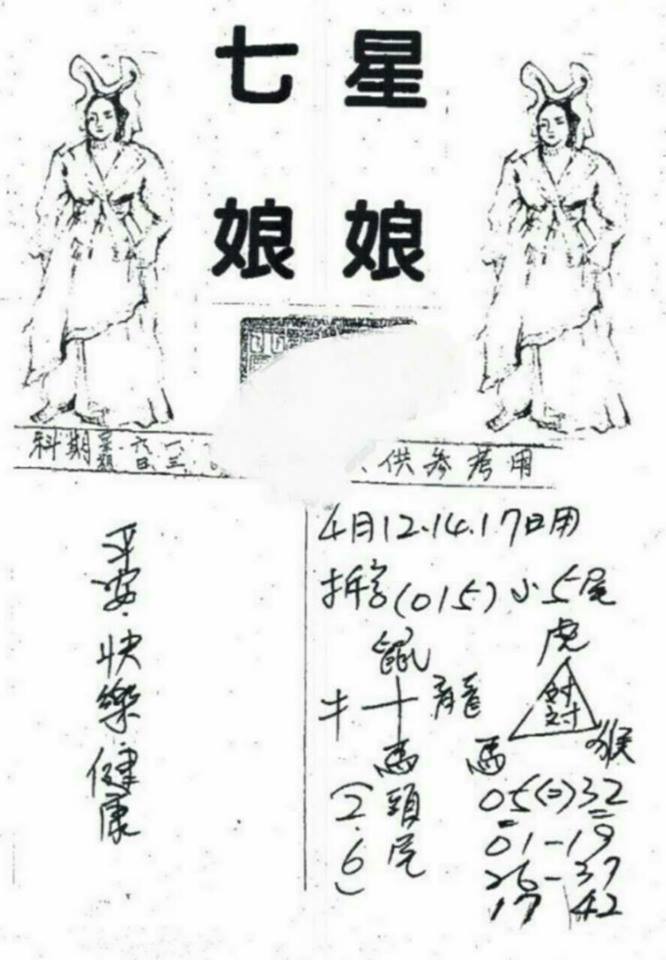 七星
娘娘
科期星期六日 一三
供參考用
平安.快樂健康
4月12.14.17日用
拆字(015)小5尾
鼠
牛 十 龍
馬
頭尾
(2.6)
虎
對
馬 猴
05(=)32
01-19
26-37
17 42